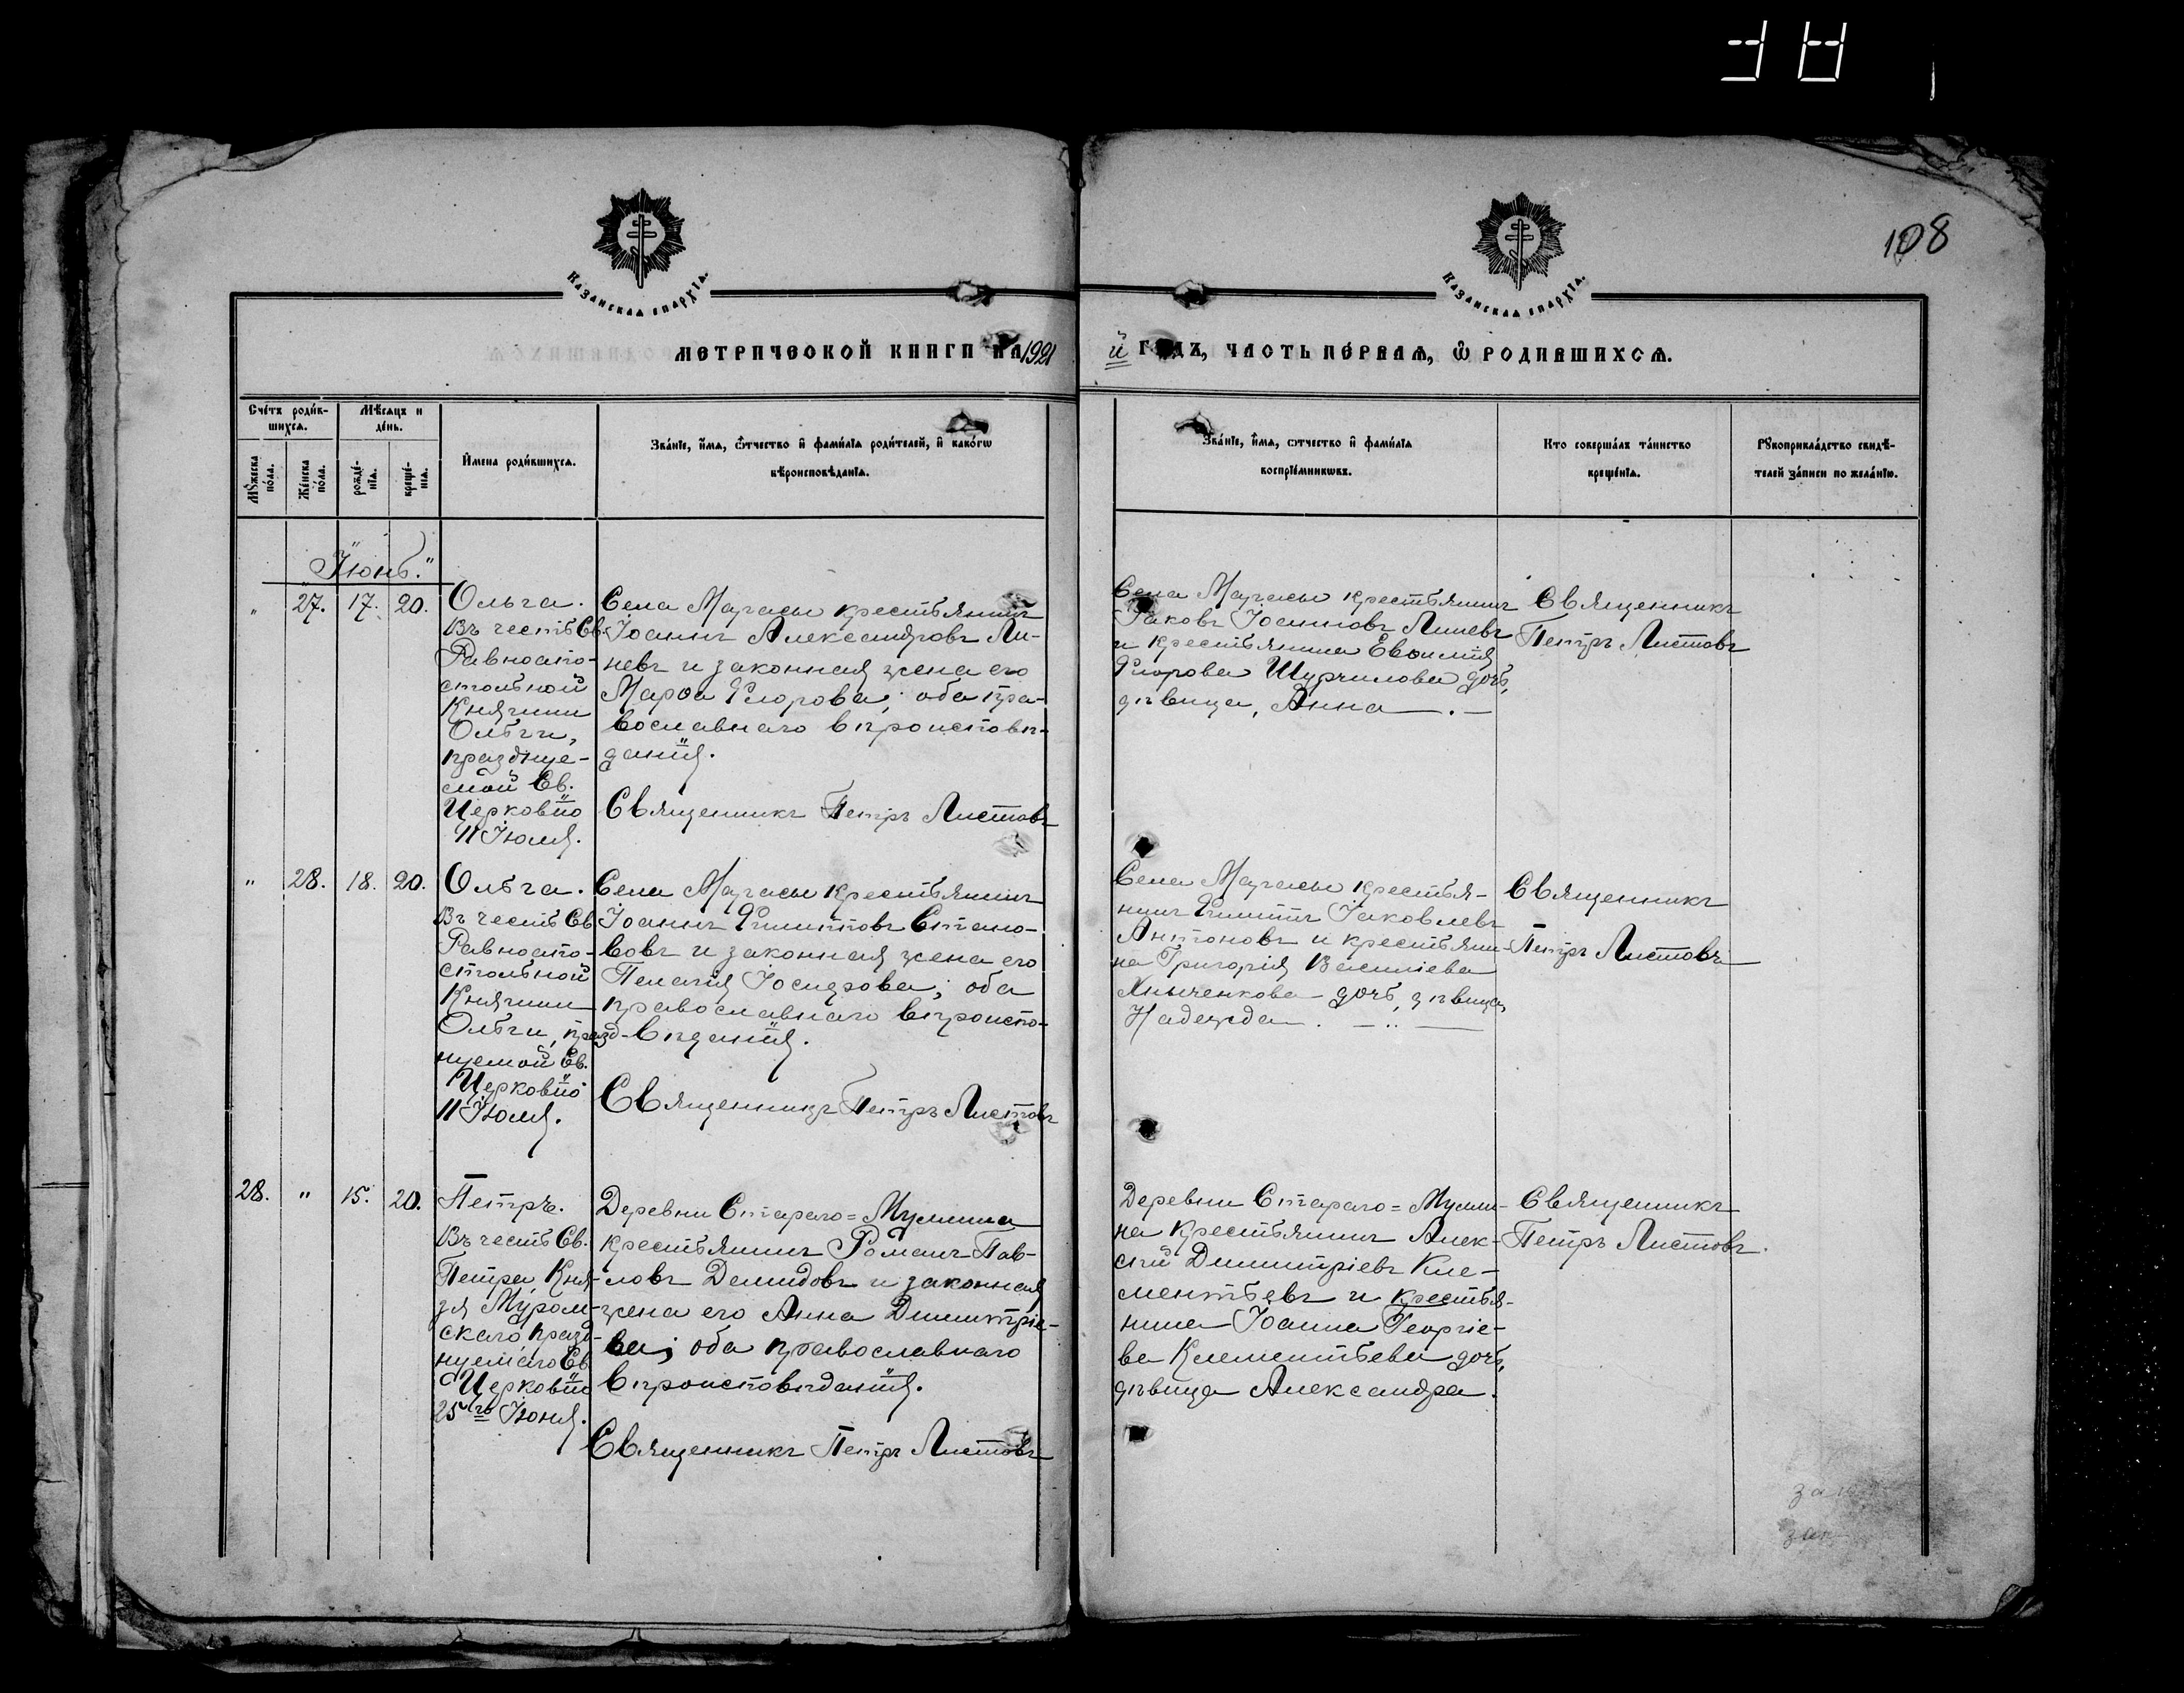 108
КАЗАНСКАЯ ЕПАРХІЯ.
КАЗАНСКАЯ ЕПАРХІЯ.
МЕТРИЧЕСКОЙ КНИГИ НА 1921
й ГОДЪ, ЧАСТЬ ПЕРВАЯ, Ѡ РОДИВШИХСЯ.
Сче́тъ роди́в-
шихся.
Мѣ́сяцъ и
де́нь.
Мꙋ́жеска
по́ла.
Же́нска
по́ла.
рожде́-
нія.
креще́-
нія.
И́мена роди́вшихся.
Зва́ніе, и́мя, ѻ҆́тчество и҆ фами́лія роди́телей, и҆ како́гѡ
вѣроисповѣ́данія.
Зва́ніе, и́мя, ѻтчество и҆ фами́лія
воспріе́мникѡвъ.
Кто соверша́лъ та́инство
креще́нія.
Рꙋкоприкла́дство свидѣ́-
телей за́писи по жела́нію.
"Іюнь."
" 27. 17. 20.
Ольга.
Въ честь Св.
Равноапо-
стольной
Княгини
Ольги,
празднуе-
мой Св.
Церковію
11 Іюля.
Села Магасы крестьянинъ
Іоаннъ Александровъ Ли-
невъ и законная жена его
Марѳа Егорова; оба пра-
вославнаго вѣроисповѣ-
данія.
Священникъ Петръ Листовъ
Села Магасы крестьянинъ
Іаковъ Іоанновъ Линевъ
и крестьянина Евѳимія
Егорова Шурчилова дочь,
дѣвица, Анна
Священникъ
Петръ Листовъ
" 28. 18. 20.
Ольга.
Въ честь Св
Равноапо-
стольной
Княгини
Ольги, празд-
нуемой Св.
Церковію
11 Іюля.
Села Магасы крестьянинъ
Іоаннъ Филипповъ
и законная жена его
Пелагія; оба
православнаго вѣроиспо-
вѣданія.
Священникъ Петръ Листовъ
Села Магасы крестья-
нинъ Филиппъ Іаковлевъ
Антоновъ и крестьяни-
на Григорія Василіева
дочь, дѣвица,
Надежда
Священникъ
Петръ Листовъ
28. " 15. 20.
Петръ.
Въ честь Св.
Петра Кня-
зя Муром-
скаго празд-
нуемаго Св
Церковію
25го Іюня.
Деревни Стараго=Мумина
крестьянинъ Романъ Пав-
ловъ Демидовъ и законная
жена его Анна Димитріе-
ва; оба православнаго
вѣроисповѣданія.
Священникъ Петръ Листовъ
Деревни Стараго=Муми-
на крестьянинъ Алек-
сѣй Димитріевъ Кле-
ментьевъ и крестья-
нина Іоанна Георгіе-
ва Клементьева дочь,
дѣвица Александра.
Священникъ
Петръ Листовъ.